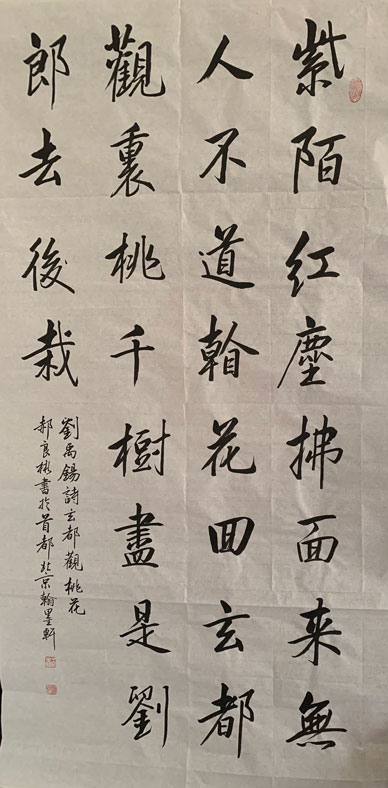 紫陌红塵拂面来無
人不道翰花回玄都
觀裏桃千樹盡是劉
郎去後栽
劉禹錫詩玄都觀桃花
郝良彬書於首都北京翰墨軒